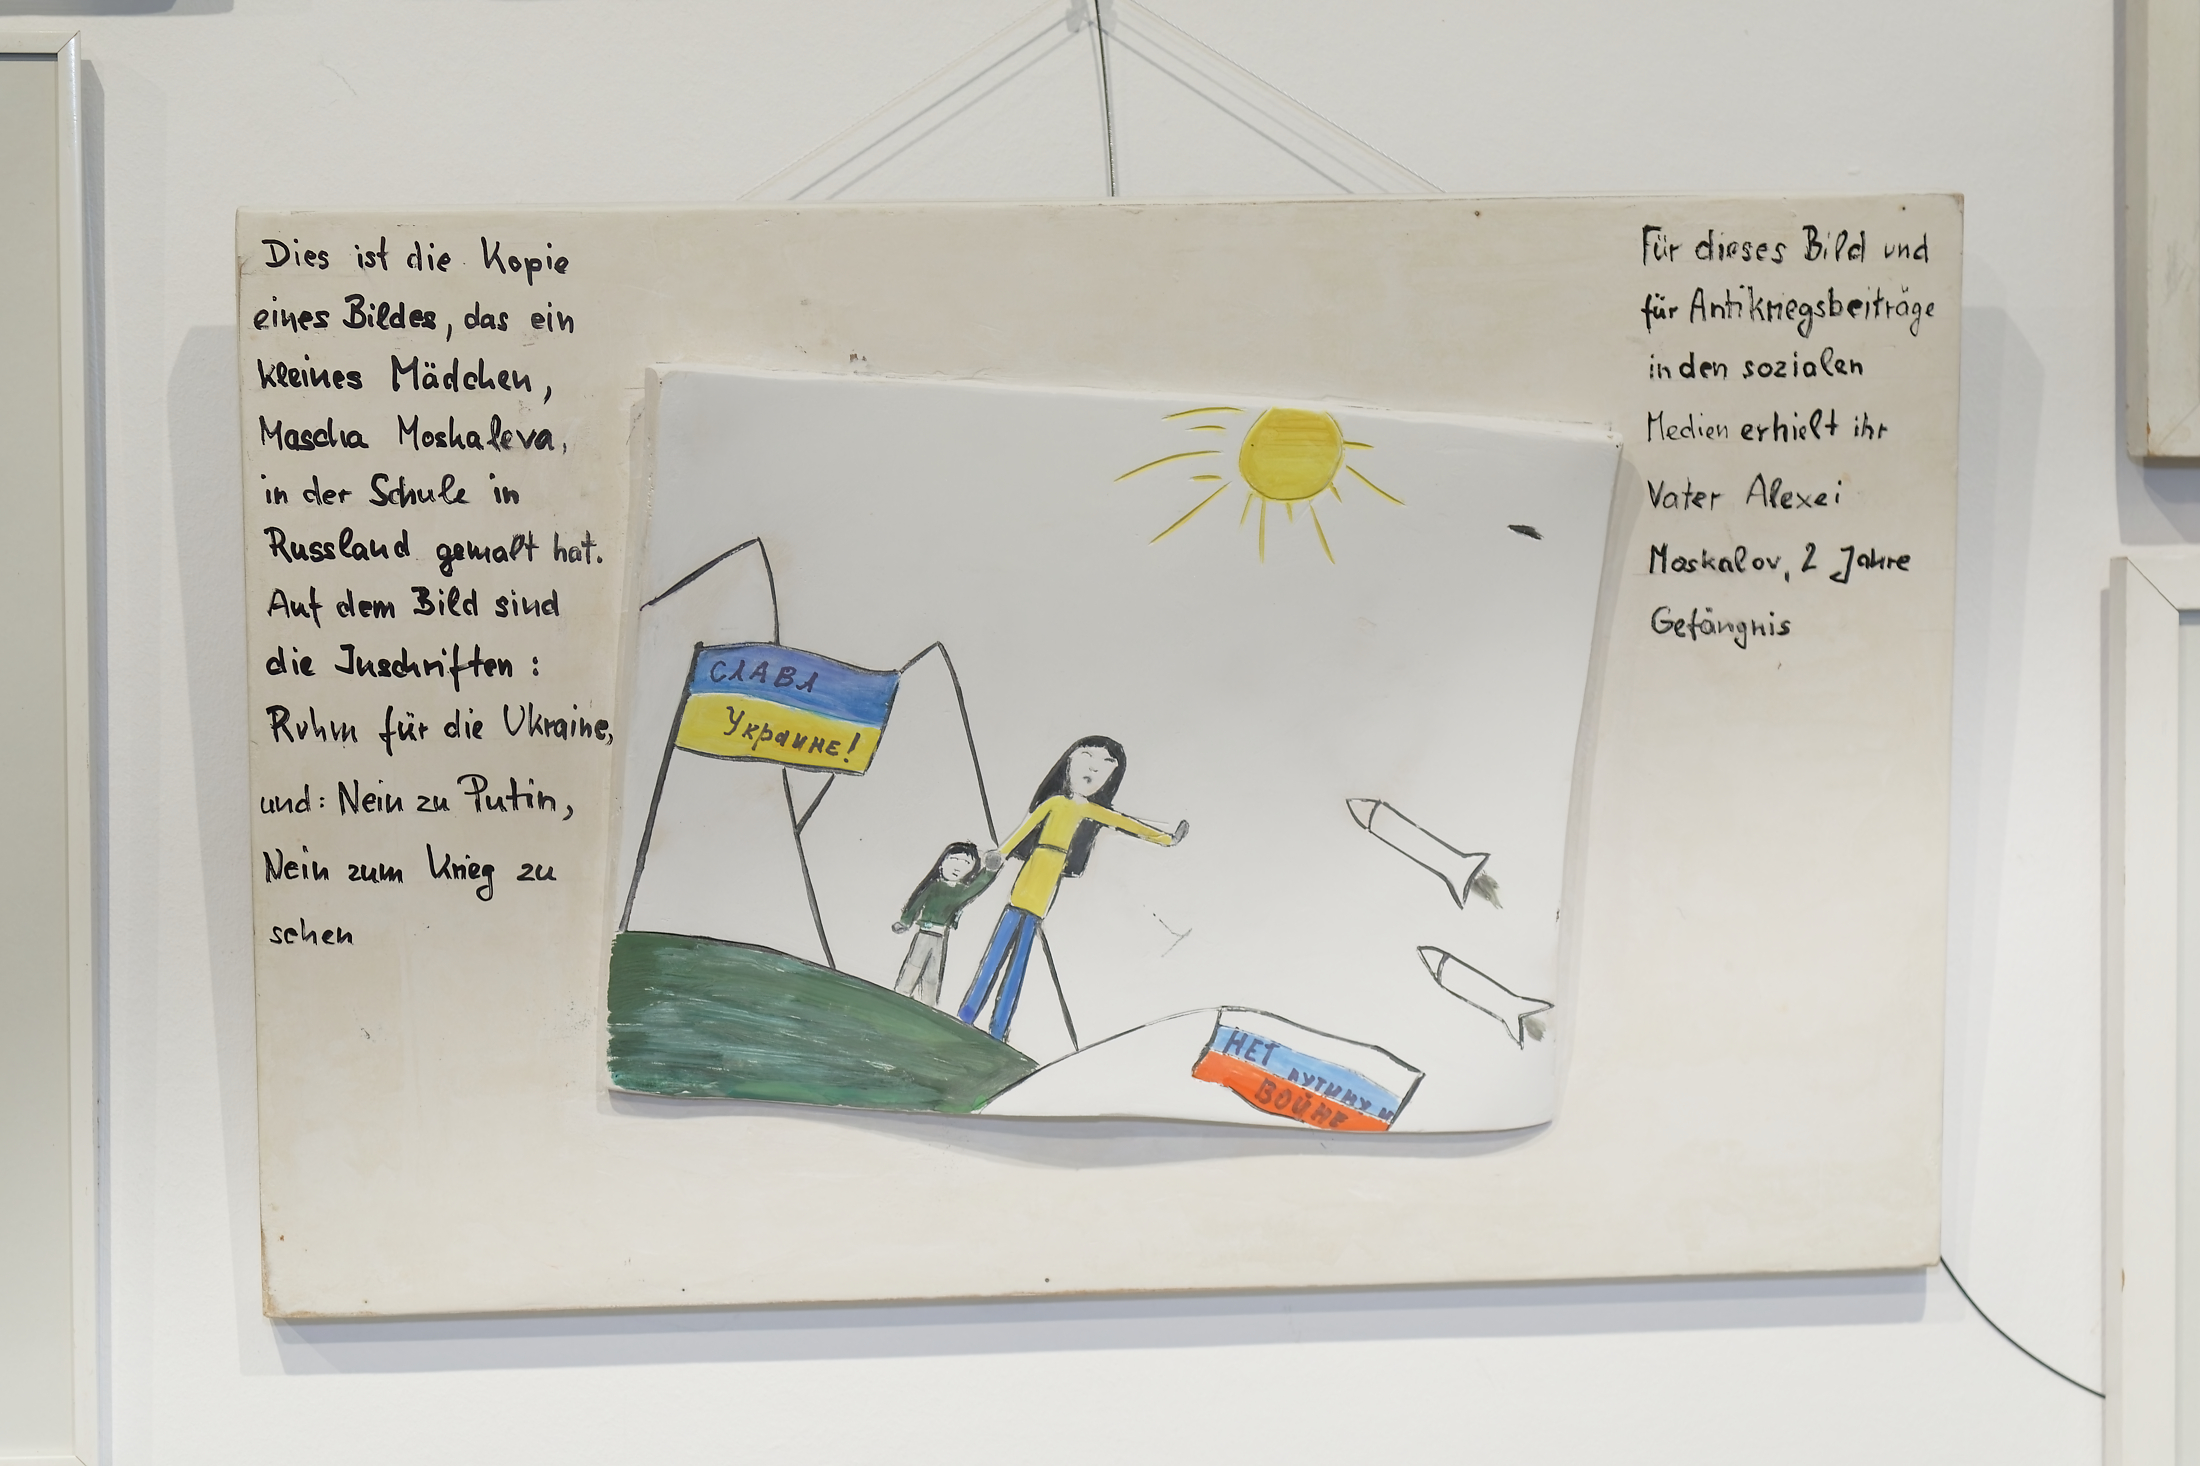 Dies ist die Kopie
eines Bildes, das ein
kleines Mädchen,
Mascha Moskaleva,
in der Schule in
Russland gemalt hat.
Auf dem Bild sind
die Inschriften :
Ruhm für die Ukraine,
und: Nein zu Putin,
Nein zum Krieg zu
sehen
СЛАВА
Украине!
НЕТ
ПУТИНУ и
ВОЙНЕ
Für dieses Bild und
für Antikriegsbeiträge
in den sozialen
Medien erhielt ihr
Vater Alexei
Moskalov, 2 Jahre
Gefängnis